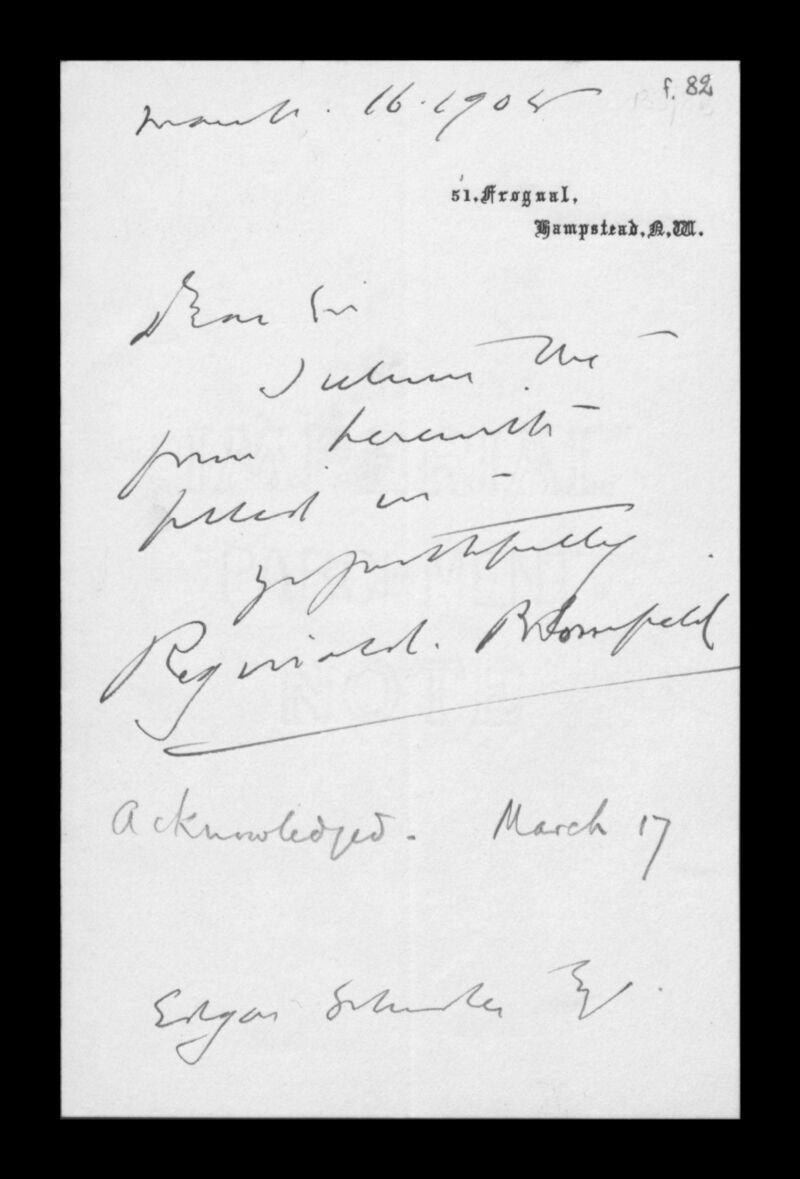 f. 82
March. 16. 1905
51, Frognal,
Hampstead, N.W.
Dear Sir
I return the
form herewith
filled in
yrs faithfully
Reginald. Blomfield
Acknowledged. March 17
Edgar Schuster Esq.
IMPERIAL
PARCHMENT
NOTE